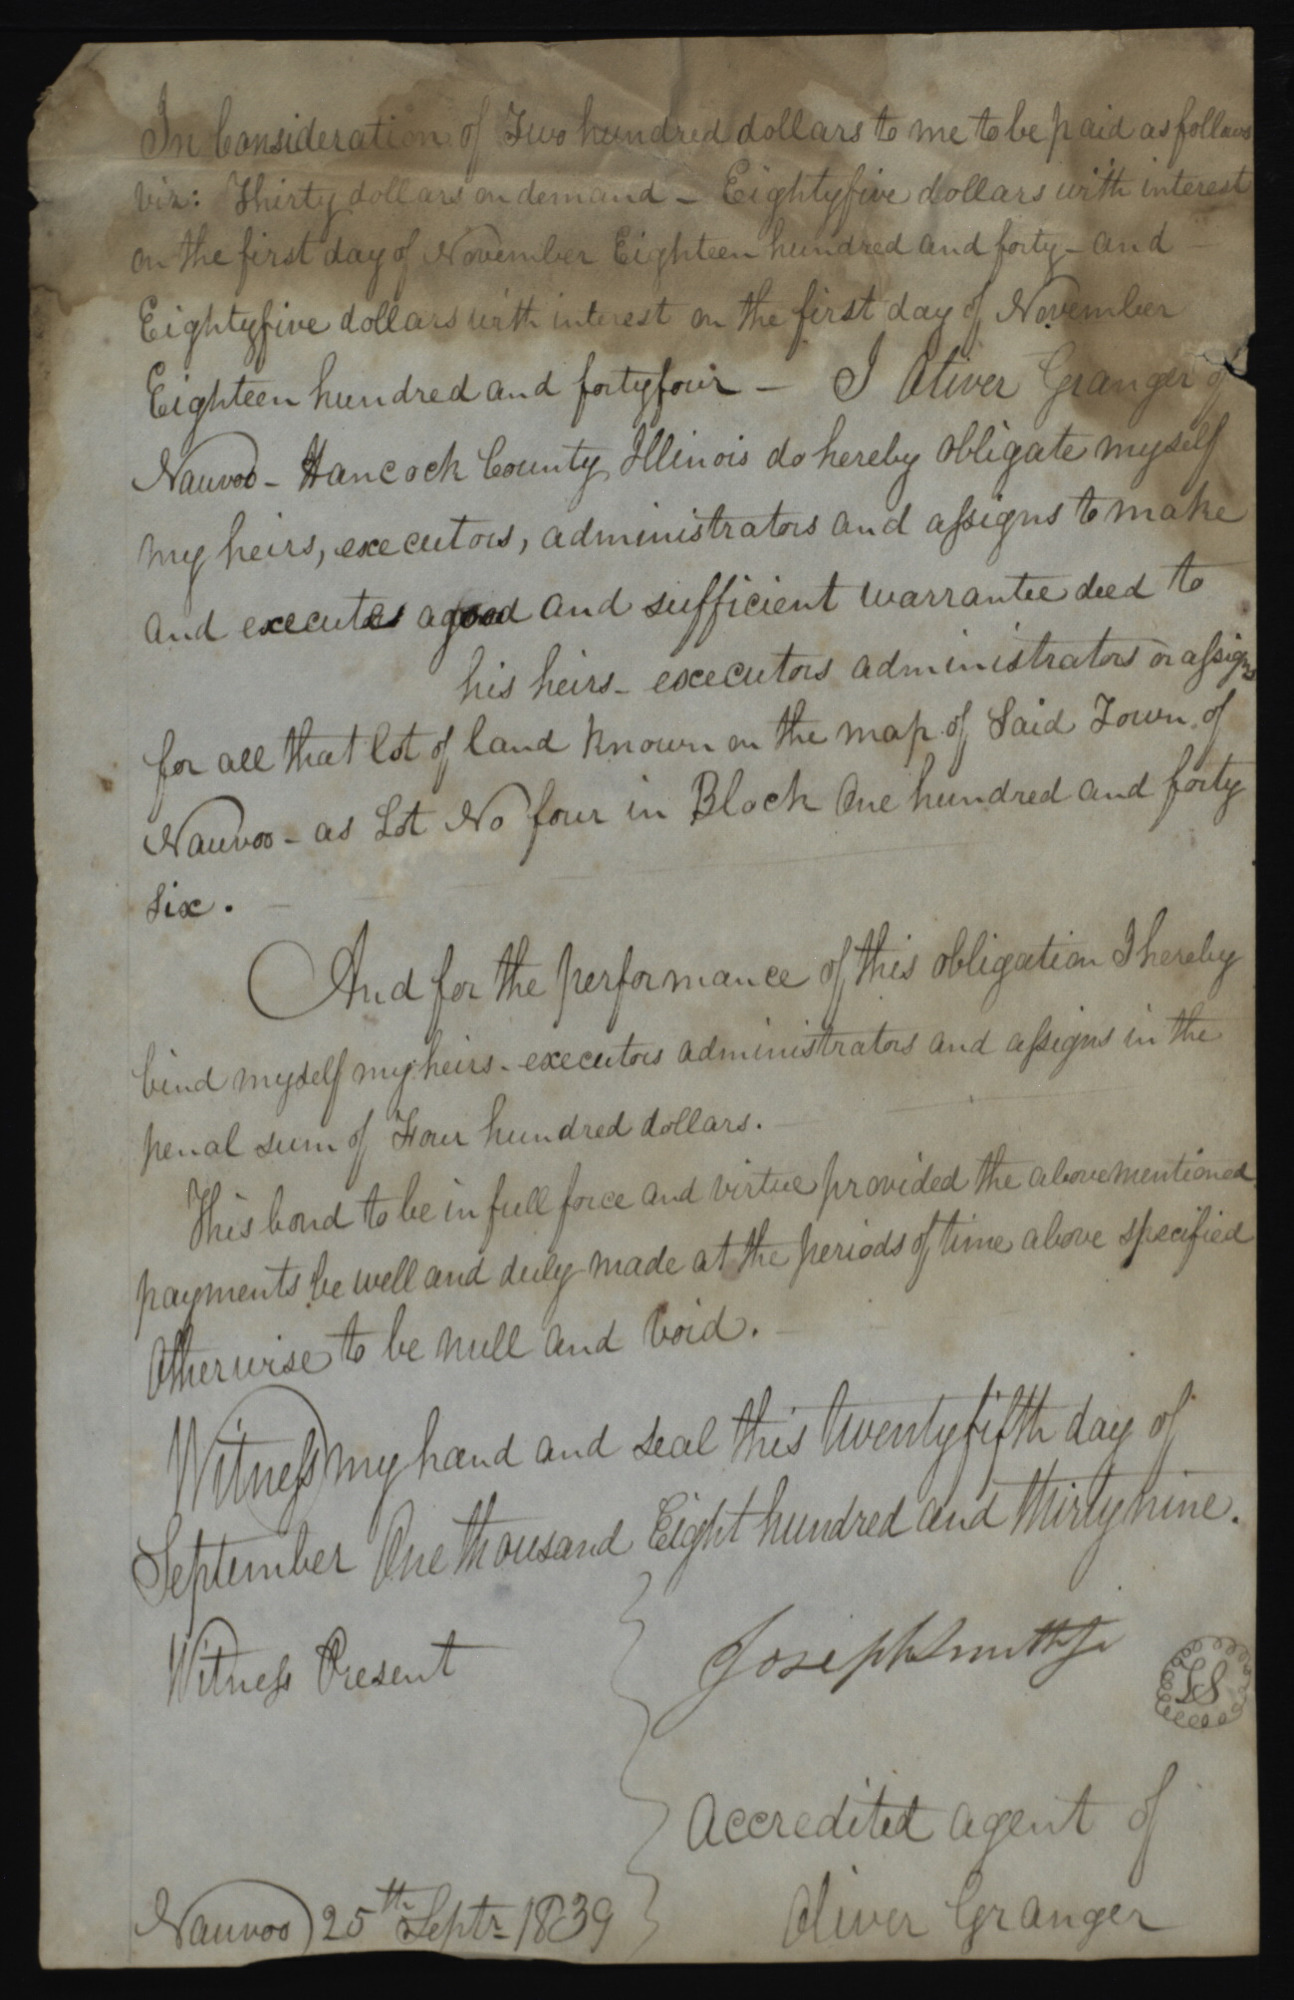 In Consideration of Two hundred dollars to me to be paid as follows
viz: Thirty dollars on demand – Eightyfive dollars with interest
on the first day of November Eighteen hundred and forty – and –
Eightyfive dollars with interest on the first day of November
Eighteen hundred and fortyfour – I Oliver Granger of
Nauvoo – Hancock County Illinois do hereby obligate myself
my heirs, executors, administrators and assigns to make
and execute a good and sufficient warrantee deed to
his heirs – executors administrators or assigns
for all that lot of land known on the map of Said Town of
Nauvoo – as Lot No four in Block One hundred and forty
six. –
And for the performance of this obligation I hereby
bind myself my heirs – executors administrators and assigns in the
penal sum of Four hundred dollars. –
This bond to be in full force and virtue provided the abovementioned
payments be well and duly made at the periods of time above specified
Otherwise to be null and void. –
Witness my hand and seal this twentyfifth day of
September One thousand Eight hundred and thirtynine.
Witness Present
Joseph Smith Jr
LS
Accredited agent of
Oliver Granger
Nauvoo 25th Septr 1839